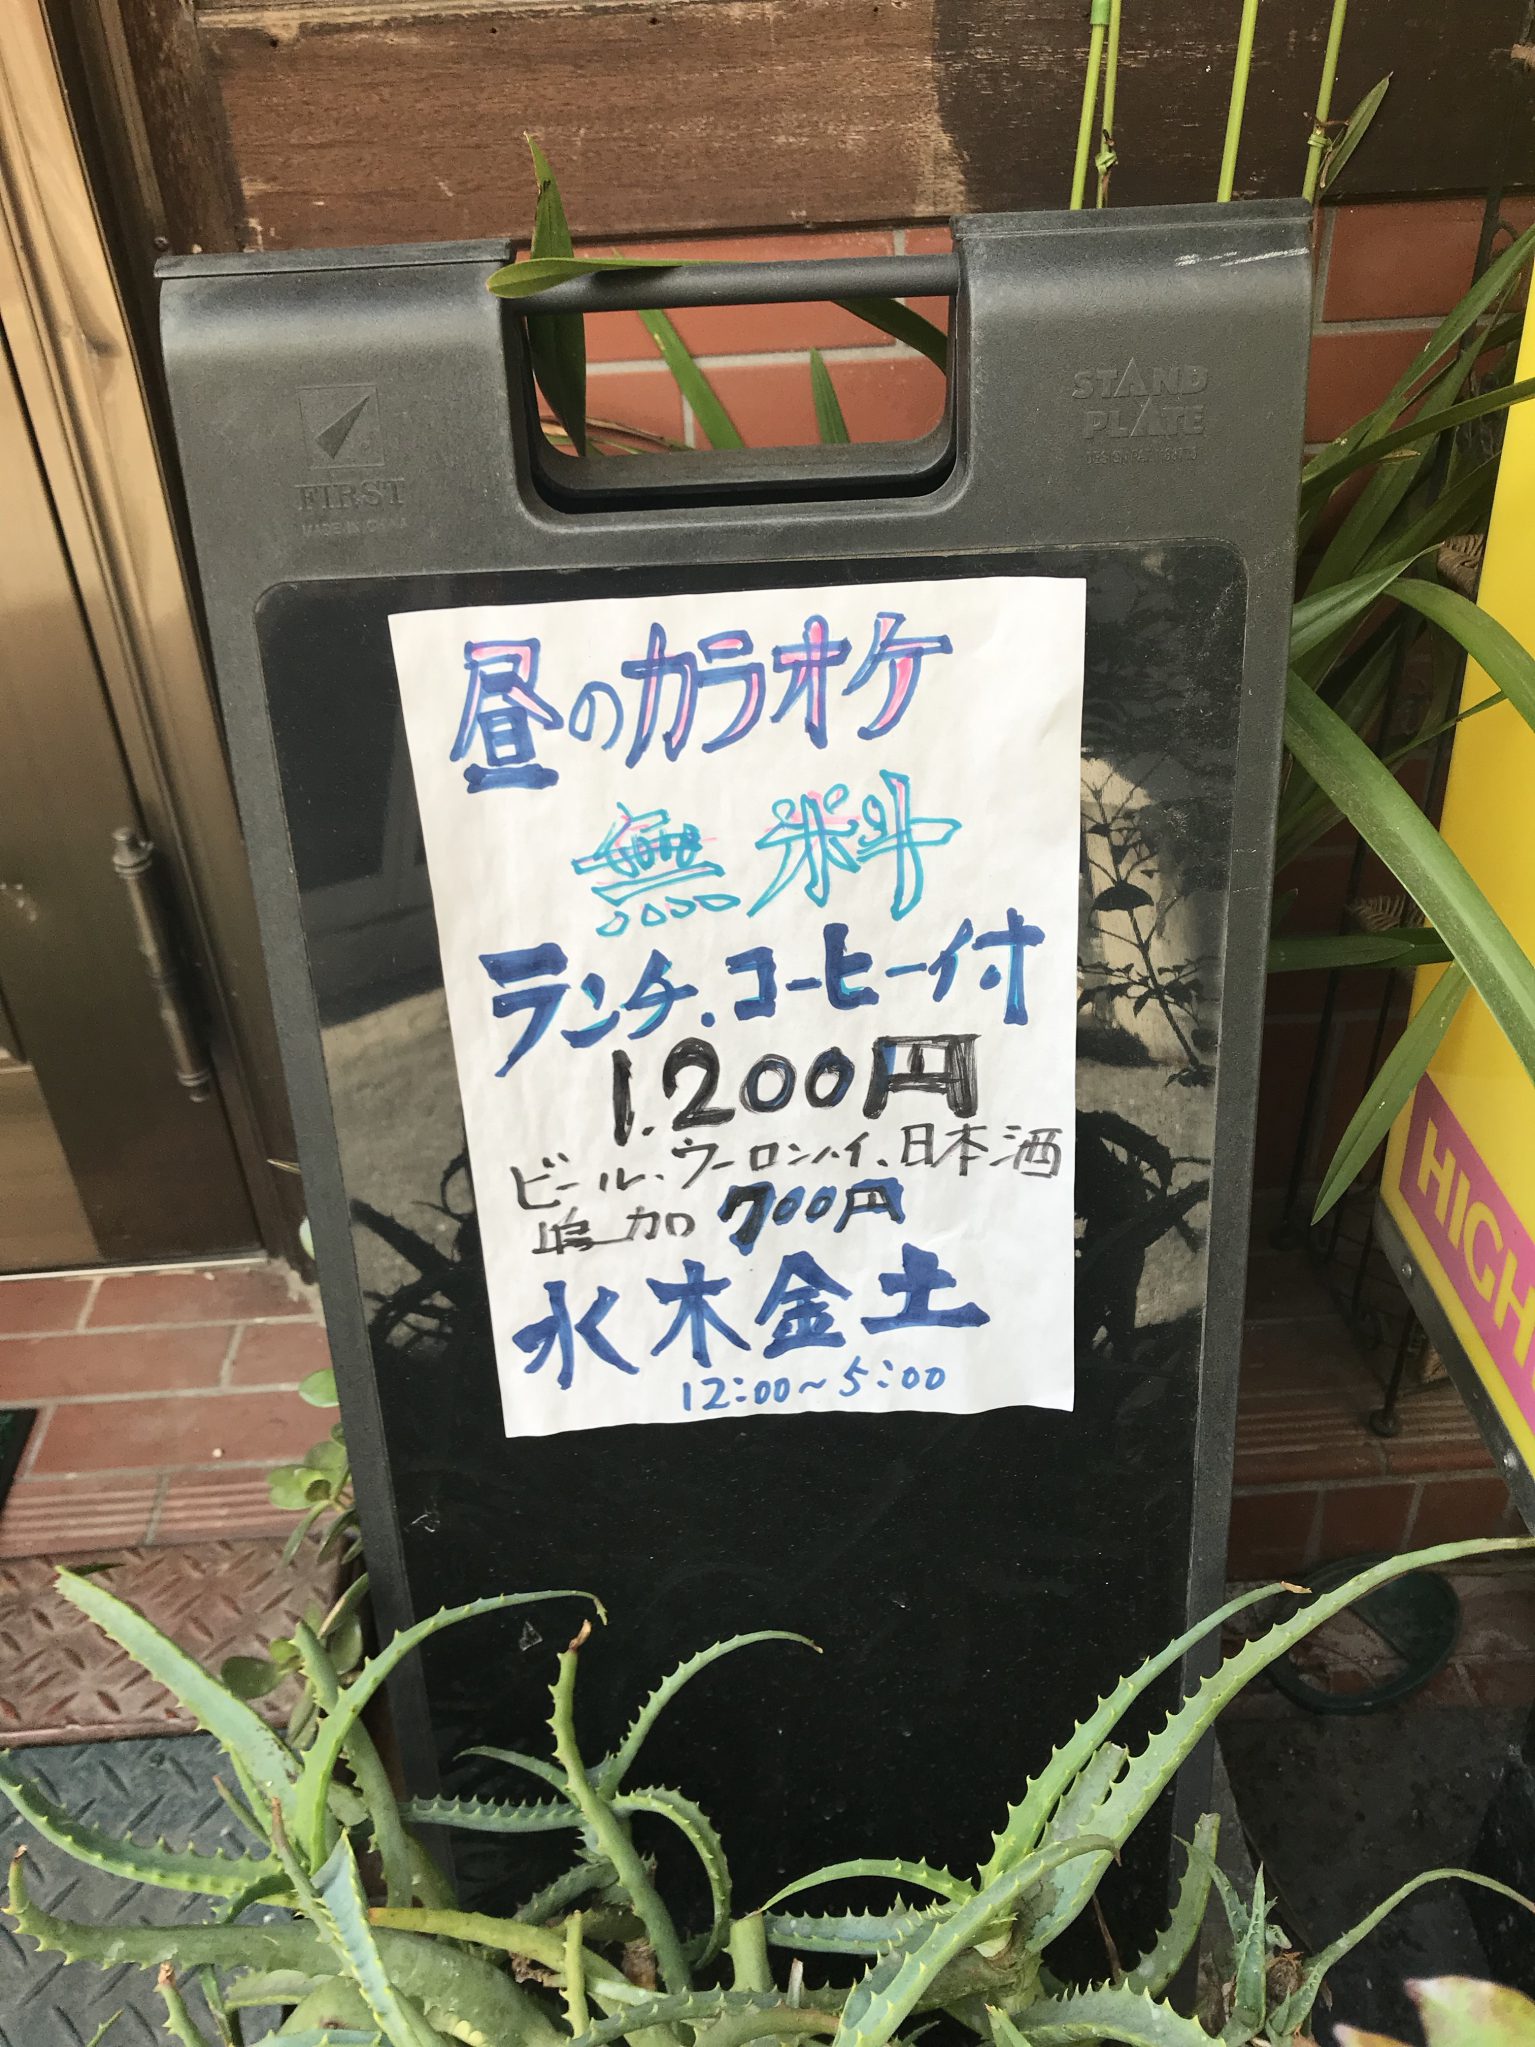 FIRST
MADE IN CHINA
STAND
PLATE
昼のカラオケ
無料
ランチ.コーヒー付
1.200円
ビール、ウーロンハイ、日本酒
追加 700円
水木金土
12:00~5:00
HIGH